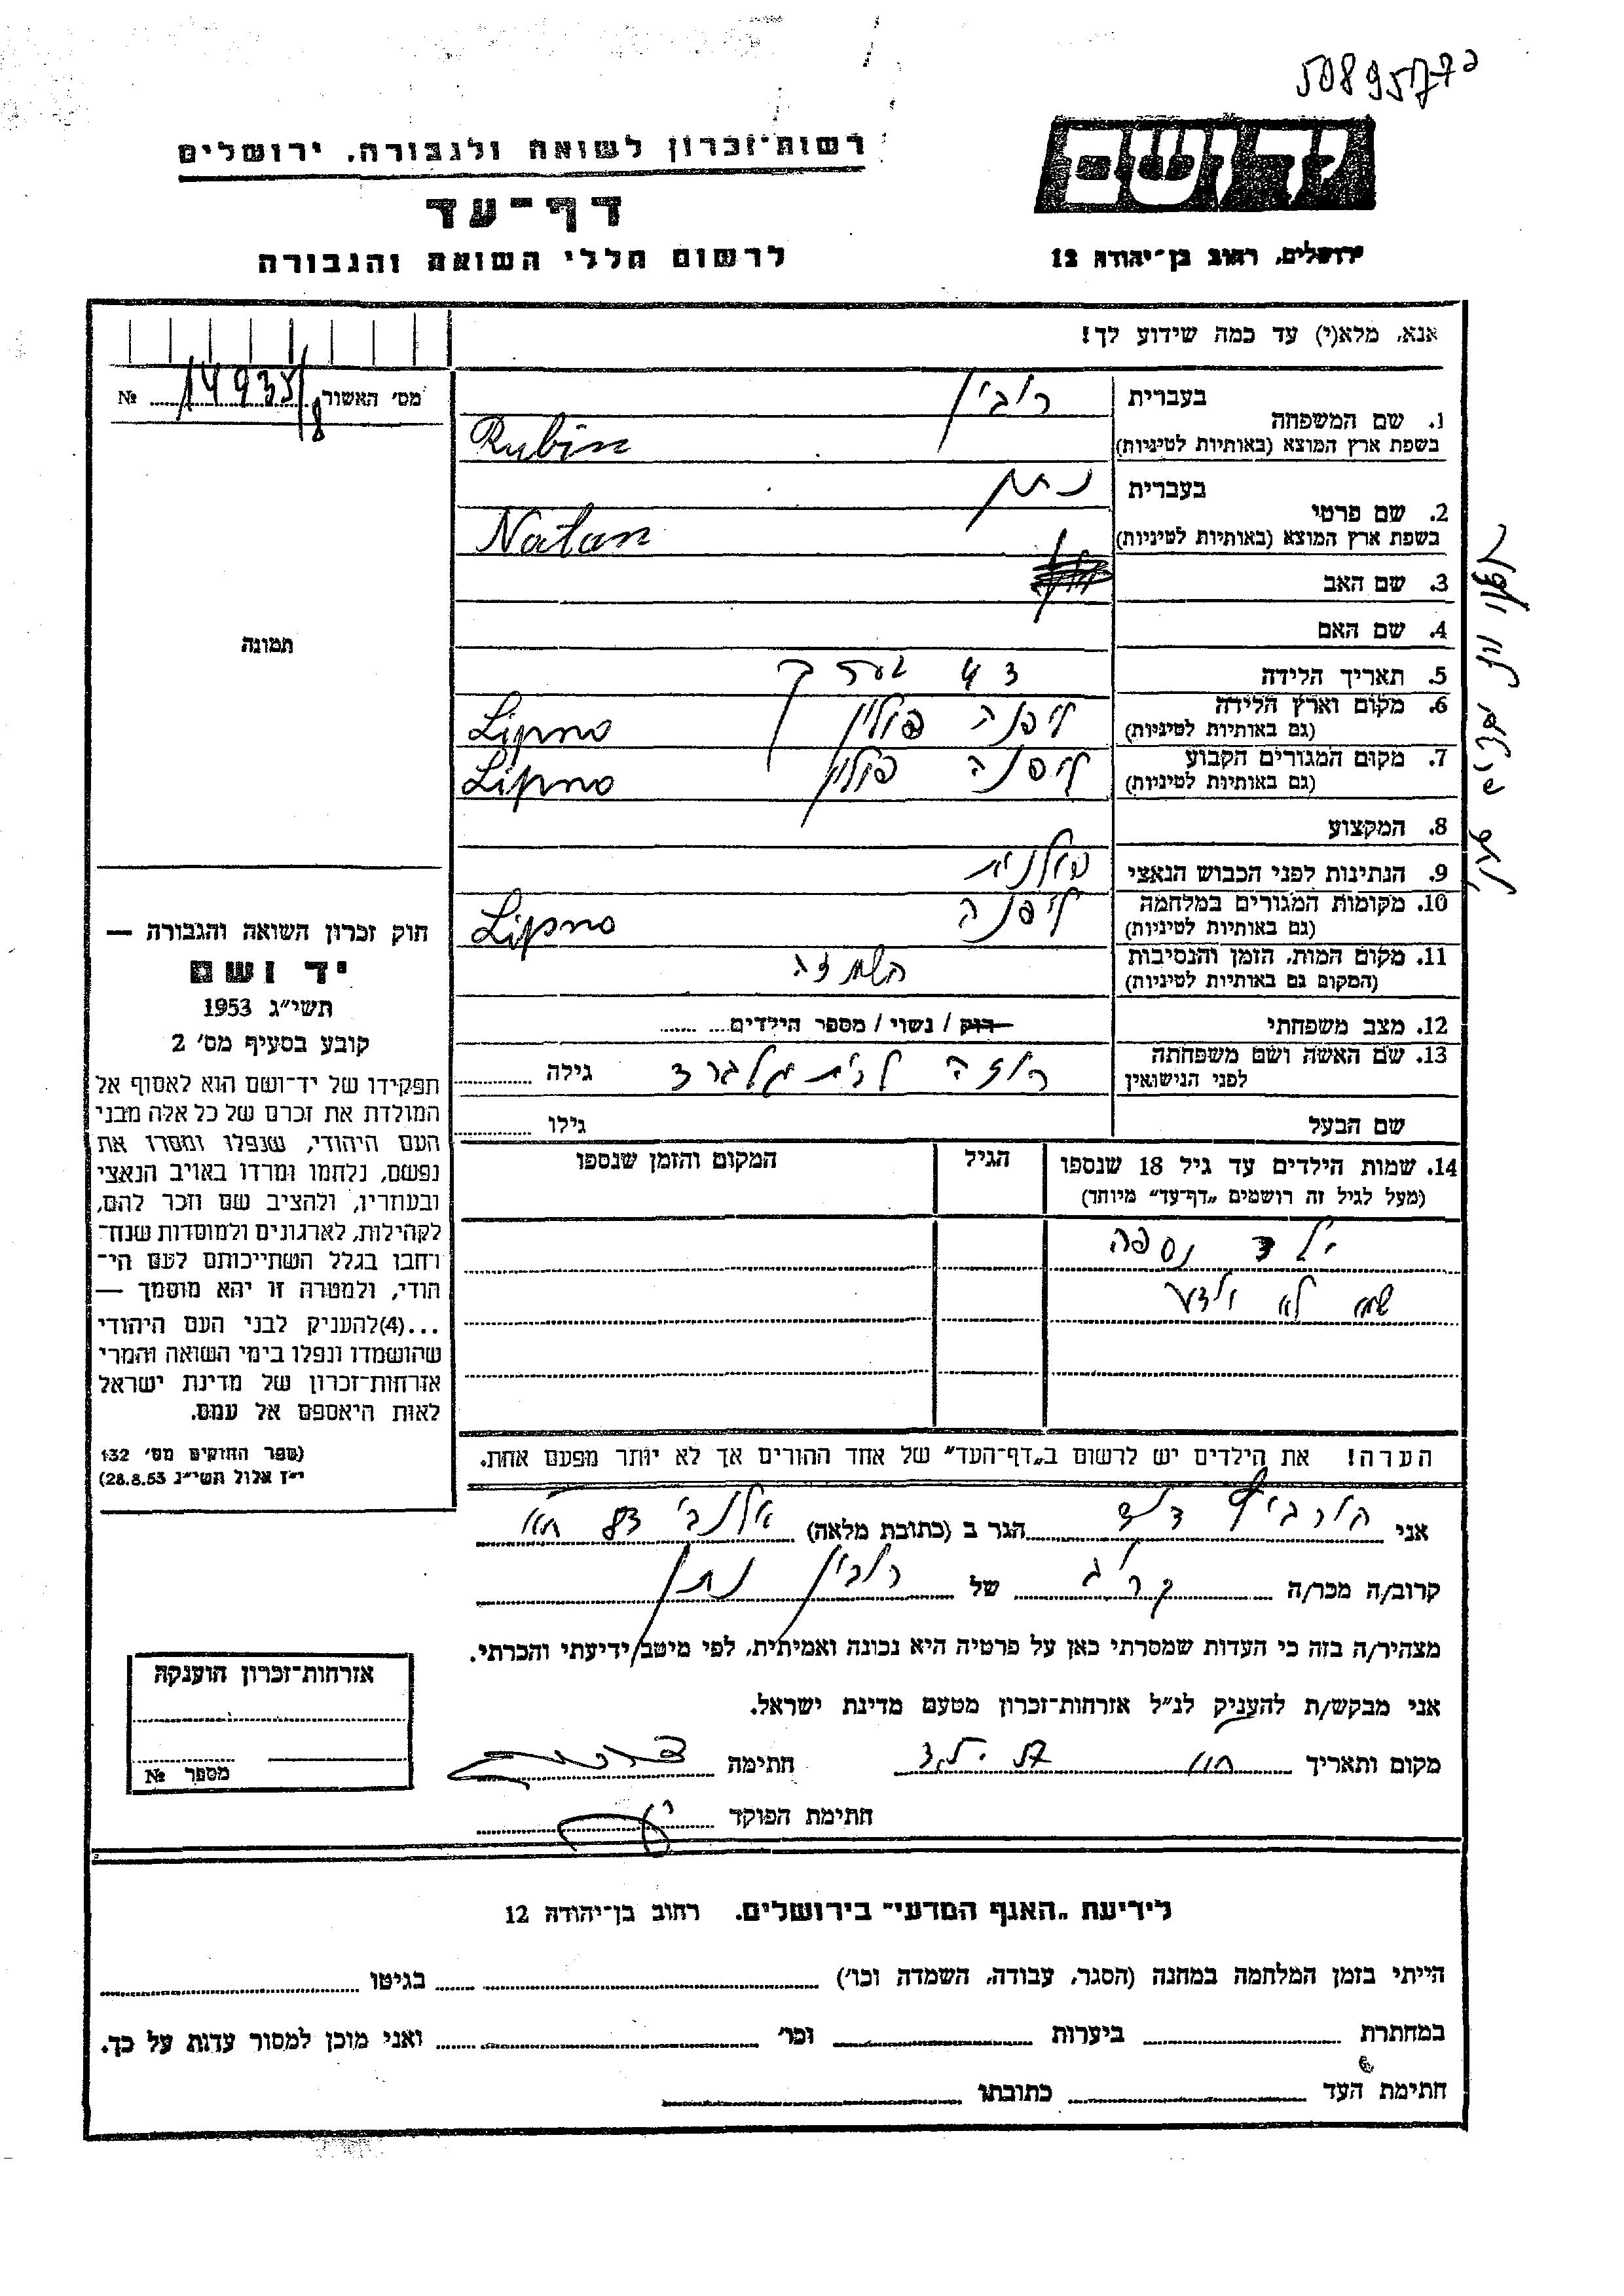 רשות־זכרון לשואה ולגבורה, ירושלים
דף־עד
לרשום חללי השואה והגבורה
ירושלים, רחוב בן־יהודה 12
אנא, מלא(י) עד כמה שידוע לך!
מס׳ האשור 14935/8 №
בעברית רובין
1. שם המשפחה
בשפת ארץ המוצא (באותיות לטיניות) Rubin
בעברית נתן
2. שם פרטי
בשפת ארץ המוצא (באותיות לטיניות) Natan
3. שם האב
4. שם האם
5. תאריך הלידה
6. מקום וארץ הלידה ליפנה פולין Lipno
(גם באותיות לטיניות)
7. מקום המגורים הקבוע ליפנה פולין Lipno
(גם באותיות לטיניות)
8. המקצוע
9. הנתינות לפני הכבוש הנאצי פולנית
10. מקומות המגורים במלחמה ליפנה Lipno
(גם באותיות לטיניות)
11. מקום המות, הזמן והנסיבות השמדה
(המקום גם באותיות לטיניות)
12. מצב משפחתי רוק / נשוי / מספר הילדים
13. שם האשה ושם משפחתה רוזה לבית גילה
לפני הנישואין
שם הבעל גילו
תמונה
חוק זכרון השואה והגבורה —
יד ושם
תשי״ג 1953
קובע בסעיף מס׳ 2
תפקידו של יד־ושם הוא לאסוף אל
המולדת את זכרם של כל אלה מבני
העם היהודי, שנפלו ומסרו את
נפשם, נלחמו ומרדו באויב הנאצי
ובעוזריו, ולהציב שם וזכר להם,
לקהילות, לארגונים ולמוסדות שנח־
רחבו בגלל השתייכותם לעם הי־
הודי, ולמטרה זו יהא מוסמך —
...(4)להעניק לבני העם היהודי
שהושמדו ונפלו בימי השואה והמרי
אזרחות־זכרון של מדינת ישראל
לאות היאספם אל עמם.
(ספר החוקים מס׳ 132
י״ז אלול תשי״ג 28.8.53)
14. שמות הילדים עד גיל 18 שנספו הגיל המקום והזמן שנספו
(מעל לגיל זה רושמים „דף־עד״ מיוחד)
ילד נספה
שמו לא ידוע
הערה! את הילדים יש לרשום ב„דף־העד״ של אחד ההורים אך לא יותר מפעם אחת.
אני הורביץ דוד הגר ב (כתובת מלאה) אלנבי
קרוב/ה מכר/ה של רובין נתן
מצהיר/ה בזה כי העדות שמסרתי כאן על פרטיה היא נכונה ואמיתית, לפי מיטב ידיעתי והכרתי.
אני מבקש/ת להעניק לנ״ל אזרחות־זכרון מטעם מדינת ישראל.
מקום ותאריך חתימה
חתימת הפוקד
אזרחות־זכרון הוענקה
מספר №
לידיעת „האגף המדעי״ בירושלים. רחוב בן־יהודה 12
הייתי בזמן המלחמה במחנה (הסגר, עבודה, השמדה וכו׳) בגיטו
במחתרת ביערות וכו׳ ואני מוכן למסור עדות על כך.
חתימת העד כתובתו